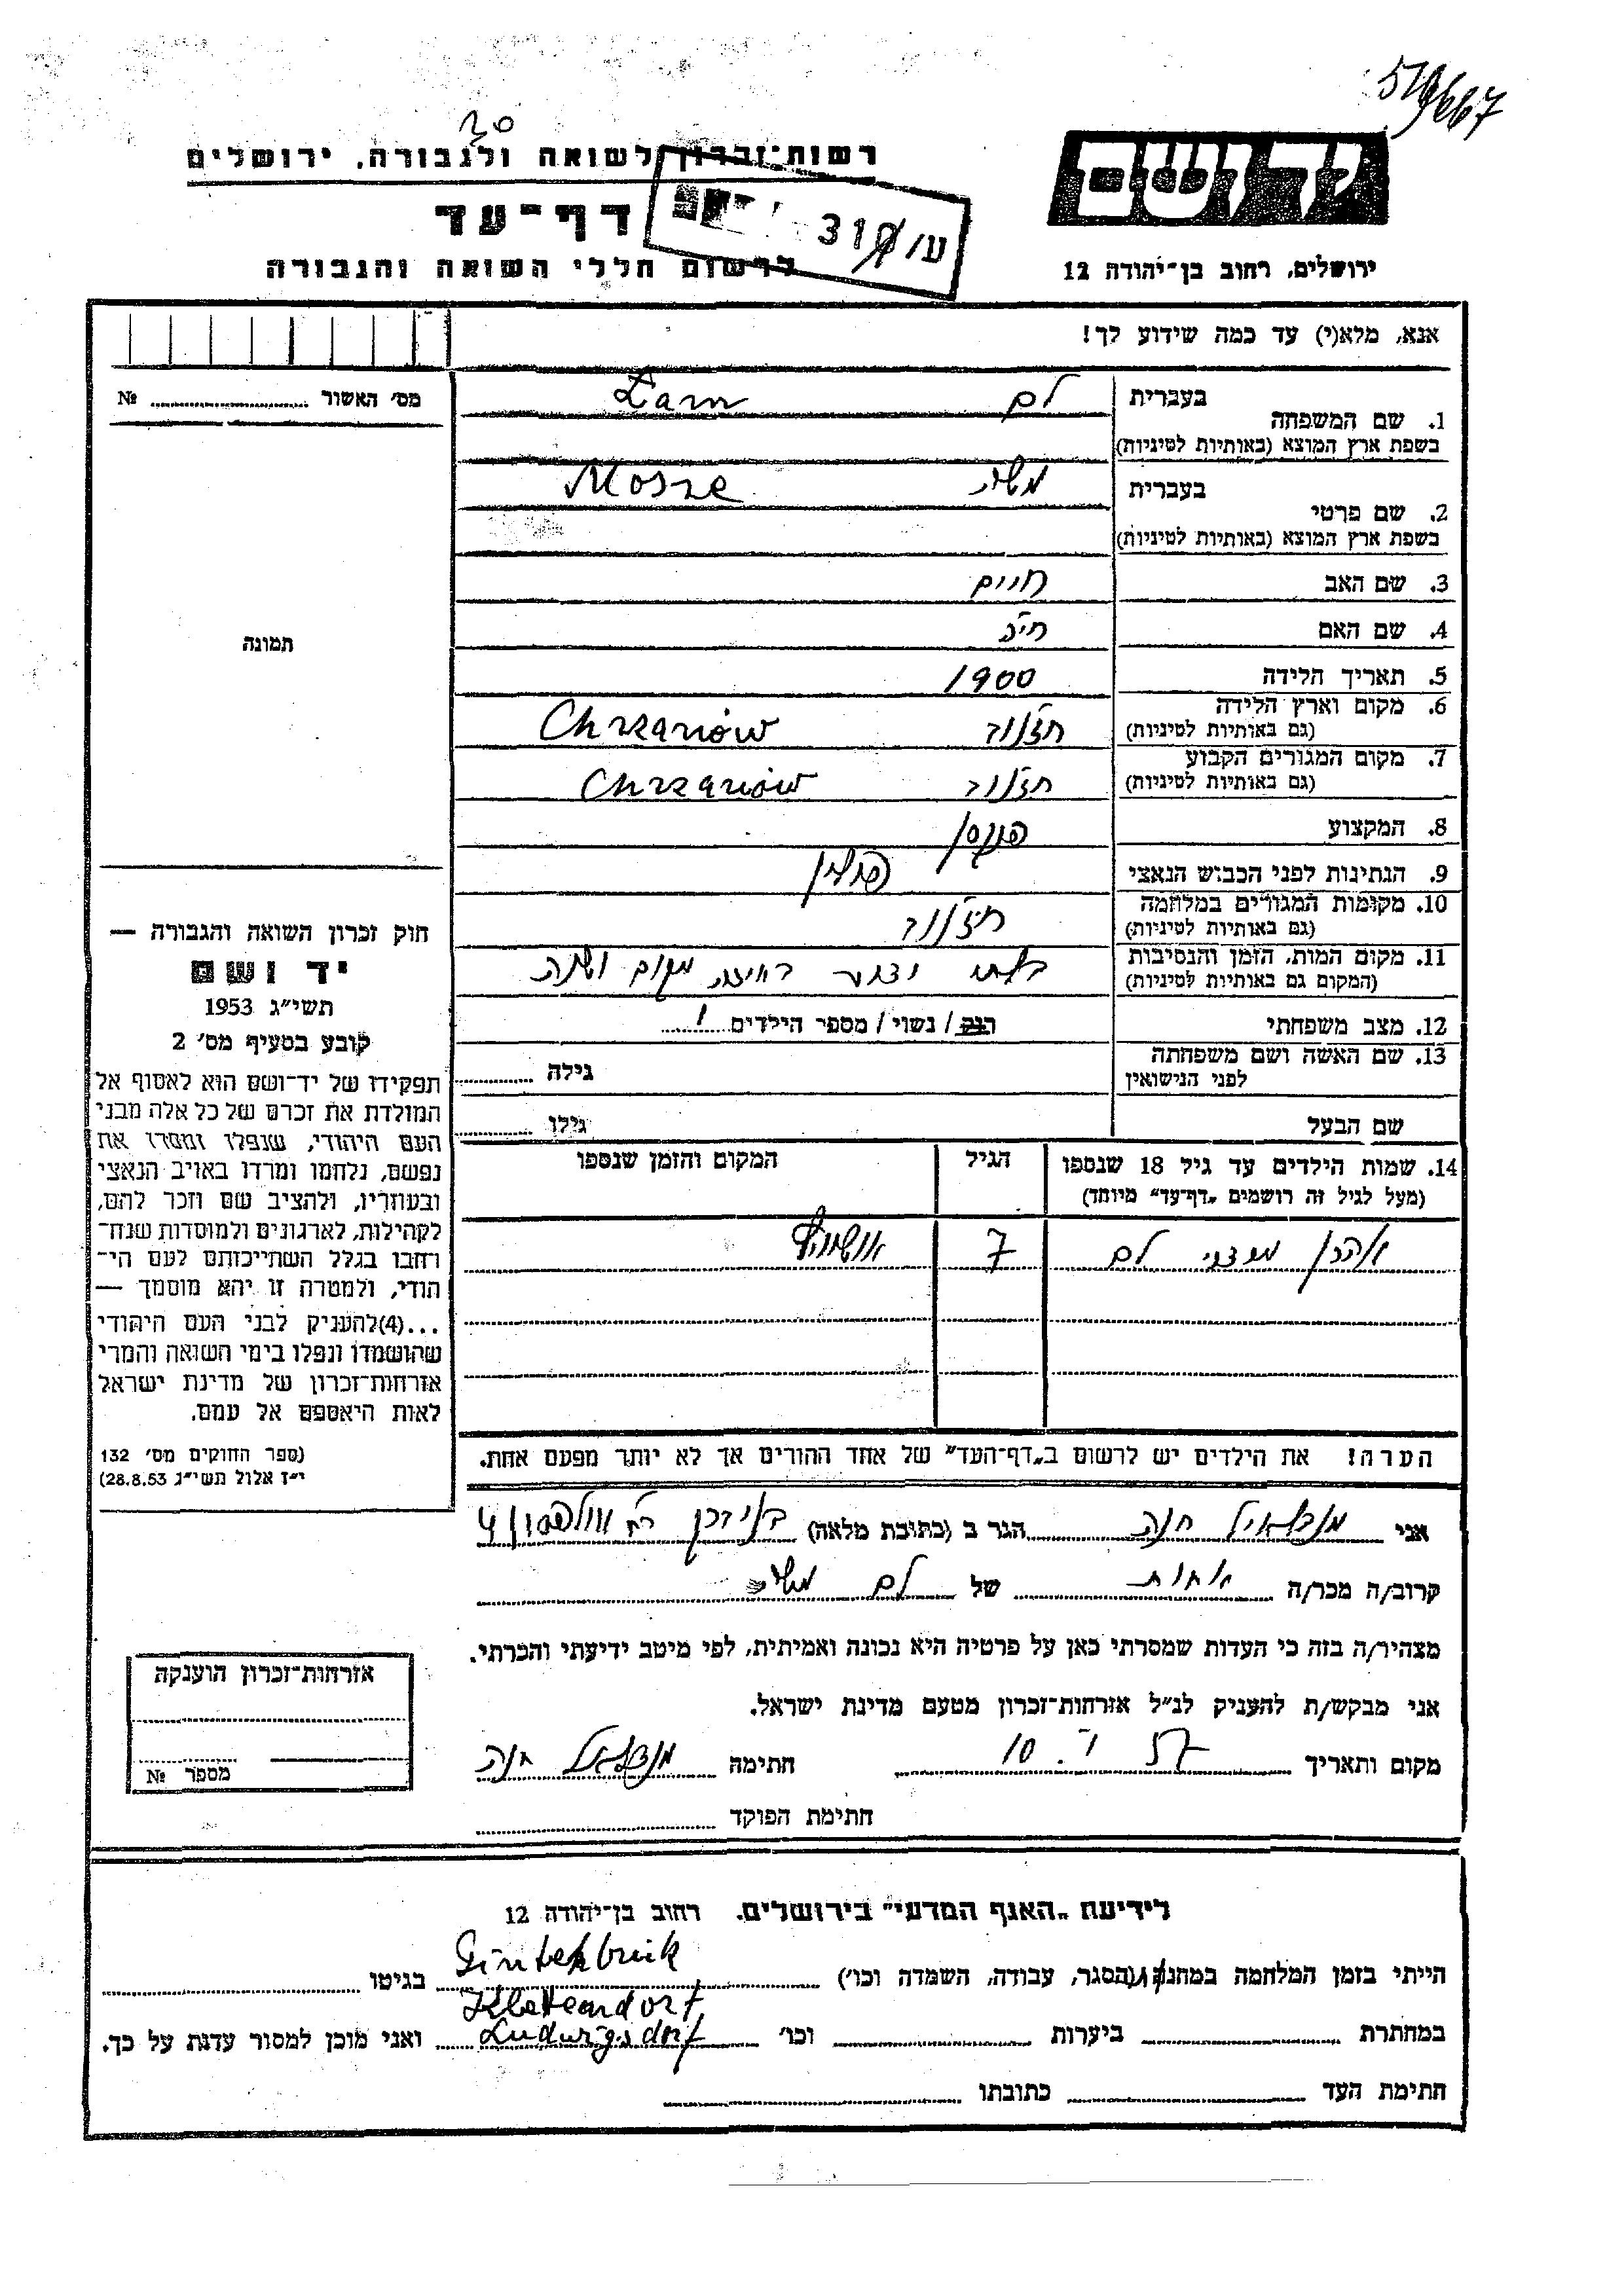 519667
20
רשות־זכרון לשואה ולגבורה, ירושלים
דף־עד
לרשום חללי השואה והגבורה
ע/ 318
יד ושם
ירושלים, רחוב בן־יהודה 12
אנא, מלא(י) עד כמה שידוע לך!
מס׳ האשור № 
1. שם המשפחה בעברית לם Lam
בשפת ארץ המוצא (באותיות לטיניות)
2. שם פרטי בעברית משה Mosze
בשפת ארץ המוצא (באותיות לטיניות)
3. שם האב חיים
4. שם האם
5. תאריך הלידה 1900
6. מקום וארץ הלידה Chrzanów
(גם באותיות לטיניות)
7. מקום המגורים הקבוע Chrzanów
(גם באותיות לטיניות)
8. המקצוע
9. הנתינות לפני הכבוש הנאצי פולין
10. מקומות המגורים במלחמה
(גם באותיות לטיניות)
11. מקום המות, הזמן והנסיבות בלתי ידוע באיזה מקום ושנה
(המקום גם באותיות לטיניות)
12. מצב משפחתי רוק / נשוי / מספר הילדים 1
13. שם האשה ושם משפחתה גילה
לפני הנישואין
שם הבעל גילו
14. שמות הילדים עד גיל 18 שנספו הגיל המקום והזמן שנספו
(מעל לגיל זה רושמים „דף־עד” מיוחד)
אהרן לם 7 אושויץ
הערה! את הילדים יש לרשום ב„דף־העד” של אחד ההורים אך לא יותר מפעם אחת.
תמונה
חוק זכרון השואה והגבורה —
יד ושם
תשי״ג 1953
קובע בסעיף מס׳ 2
תפקידו של יד־ושם הוא לאסוף אל
המולדת את זכרם של כל אלה מבני
העם היהודי, שנפלו ומסרו את
נפשם, נלחמו ומרדו באויב הנאצי
ובעוזריו, ולהציב שם וזכר להם,
לקהילות, לארגונים ולמוסדות שנח־
רחבו בגלל השתייכותם לעם הי־
הודי, ולמטרה זו יהא מוסמך —
...(4)להעניק לבני העם היהודי
שהושמדו ונפלו בימי השואה והמרי
אזרחות־זכרון של מדינת ישראל
לאות היאספם אל עמם.
(ספר החוקים מס׳ 132
י״ז אלול תשי״ג 28.8.53)
אני חנה הגר ב (כתובת מלאה)
קרוב/ה מכר/ה אחות של לם משה
מצהיר/ה בזה כי העדות שמסרתי כאן על פרטיה היא נכונה ואמיתית, לפי מיטב ידיעתי והכרתי.
אני מבקש/ת להעניק לנ״ל אזרחות־זכרון מטעם מדינת ישראל.
מקום ותאריך 10. I 57 חתימה חנה
חתימת הפוקד
אזרחות־זכרון הוענקה
מספר №
לידיעת „האגף המדעי” בירושלים, רחוב בן־יהודה 12
הייתי בזמן המלחמה במחנה (הסגר, עבודה, השמדה וכו׳) בגיטו
Klettendorf
במחתרת ביערות וכו׳ Ludwigsdorf ואני מוכן למסור עדות על כך.
חתימת העד כתובתו